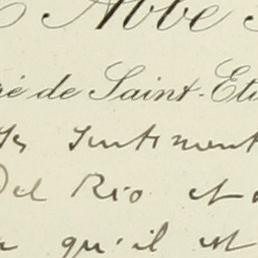 Abbé
ré de Saint-Eti
les sentiment
Del Rio et
qu'il est